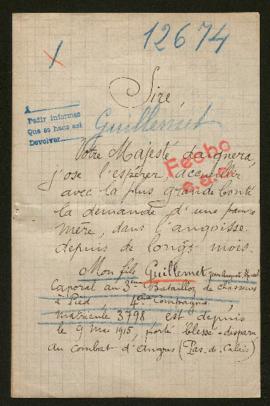 1
12674
Sire,
Pedir informes
Que se hace así
Devolver
Guillemet
Fecho
Votre Majesté daignera,
j'ose l'espérer, accueillir
avec la plus grande bonté
la demande d'une pauvre
mère, dans l'angoisse
depuis de longs mois.
Mon fils Guillemet
Caporal au 3ème Bataillon de chasseurs
à Pied 4ème Compagnie,
matricule 3798 est depuis
le 9 Mai 1915, porté blessé-disparu
au Combat d'Angres (Pas-de-Calais)